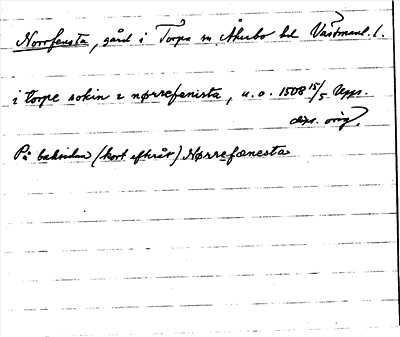 Norrfensta, gård i Torpa sn, Åkerbo hd Västmanl. l.
i torpe sokin z nørrefenista, u.o. 1508 15/5 Upps.
dipl. orig.
På baksidan (kort efteråt) Nørrefænesta